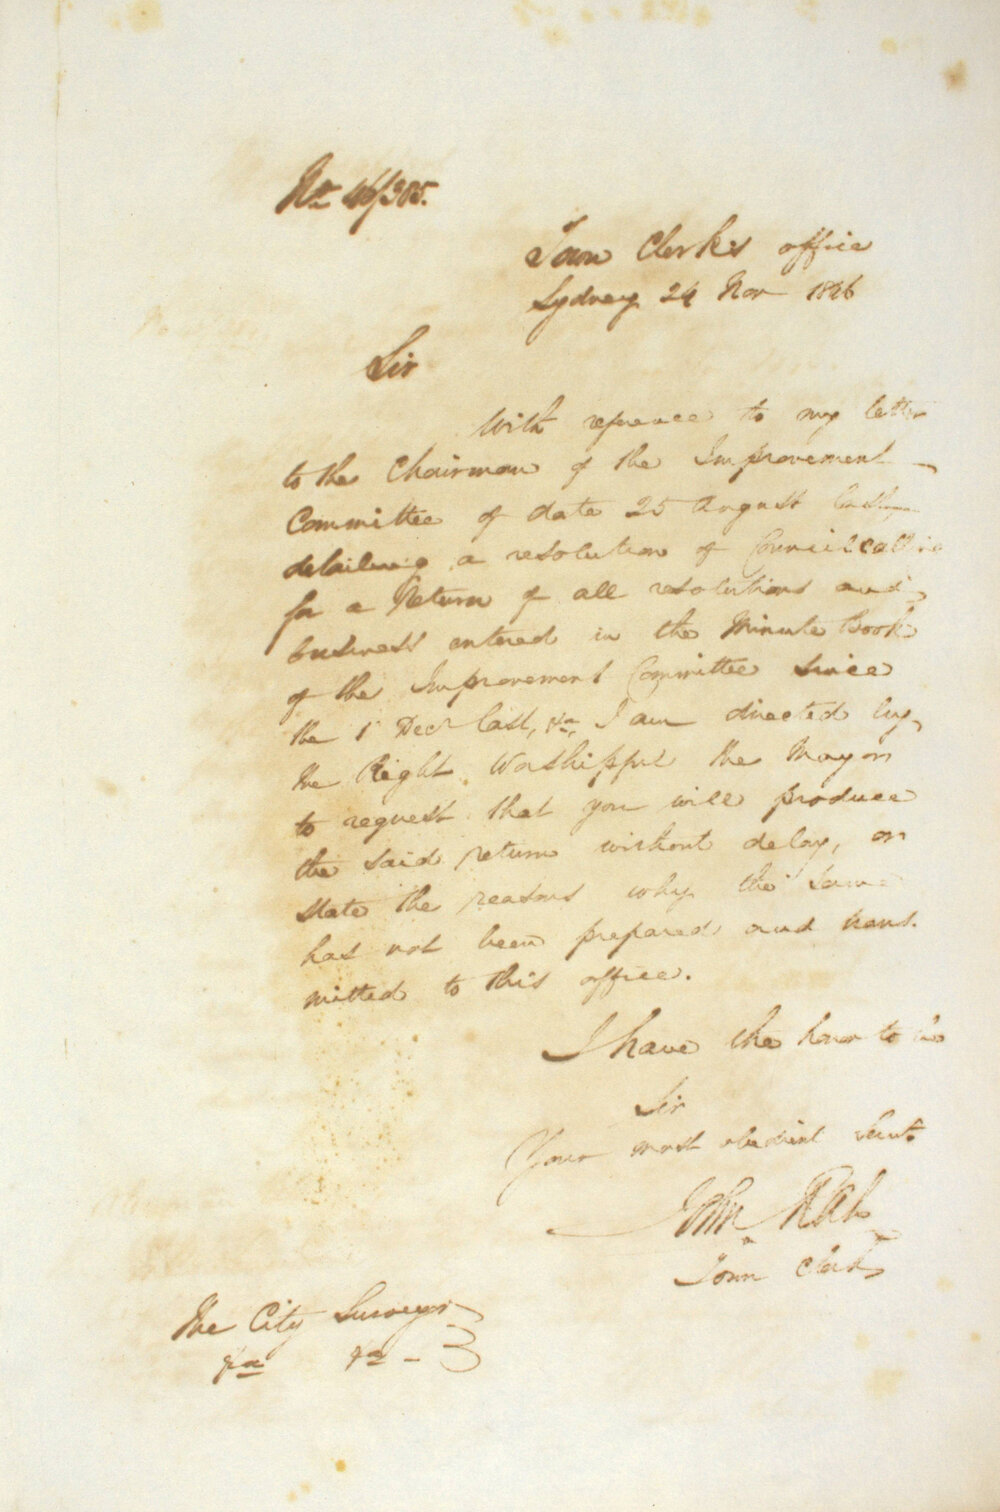 No 46/305.
Town Clerk's office
Sydney 24 Nov 1846
Sir
With reference to my letter
to the Chairman of the Improvement
Committee of date 25 August
detailing a resolution of Council calling
for a Return of all resolutions and
business entered in the Minute Book
of the Improvement Committee since
the 1st Decr last, &a, I am directed by
the Right Worshipful the Mayor
to request that you will produce
the said return without delay, or
state the reasons why the same
has not been prepared and trans-
mitted to this office.
I have the honor to be
Sir
Your most obedient Servt.
John Rae
Town Clerk
The City Surveyor
&a &a -